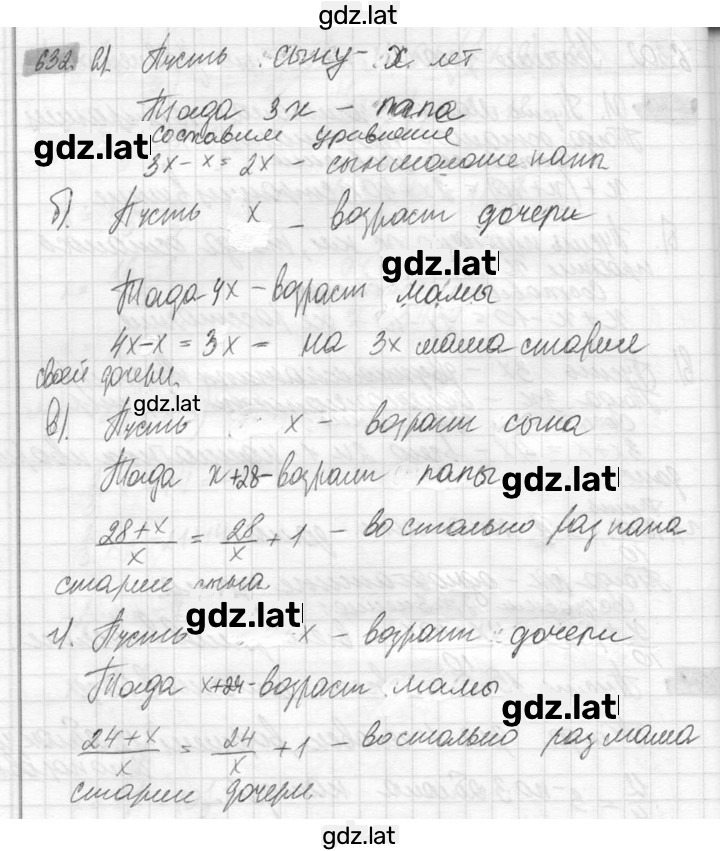 gdz.lat
632. а). Пусть сыну - x лет
Тогда 3x - папа
составим уравнение
gdz.lat
3x - x = 2x - сын моложе папы
б). Пусть x - возраст дочери
gdz.lat
Тогда 4x - возраст мамы
4x - x = 3x - на 3x мама старше
своей дочери.
gdz.lat
в). Пусть x - возраст сына
Тогда x+28 - возраст папы
gdz.lat
28+x/x = 28/x + 1 - во столько раз папа
старше сына
gdz.lat
г). Пусть x - возраст дочери
Тогда x+24 - возраст мамы
gdz.lat
24+x/x = 24/x + 1 - во столько раз мама
старше дочери
gdz.lat